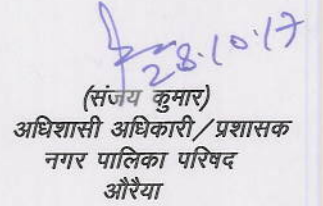 28.10.17
(संजय कुमार)
अधिशासी अधिकारी/प्रशासक
नगर पालिका परिषद
औरैया